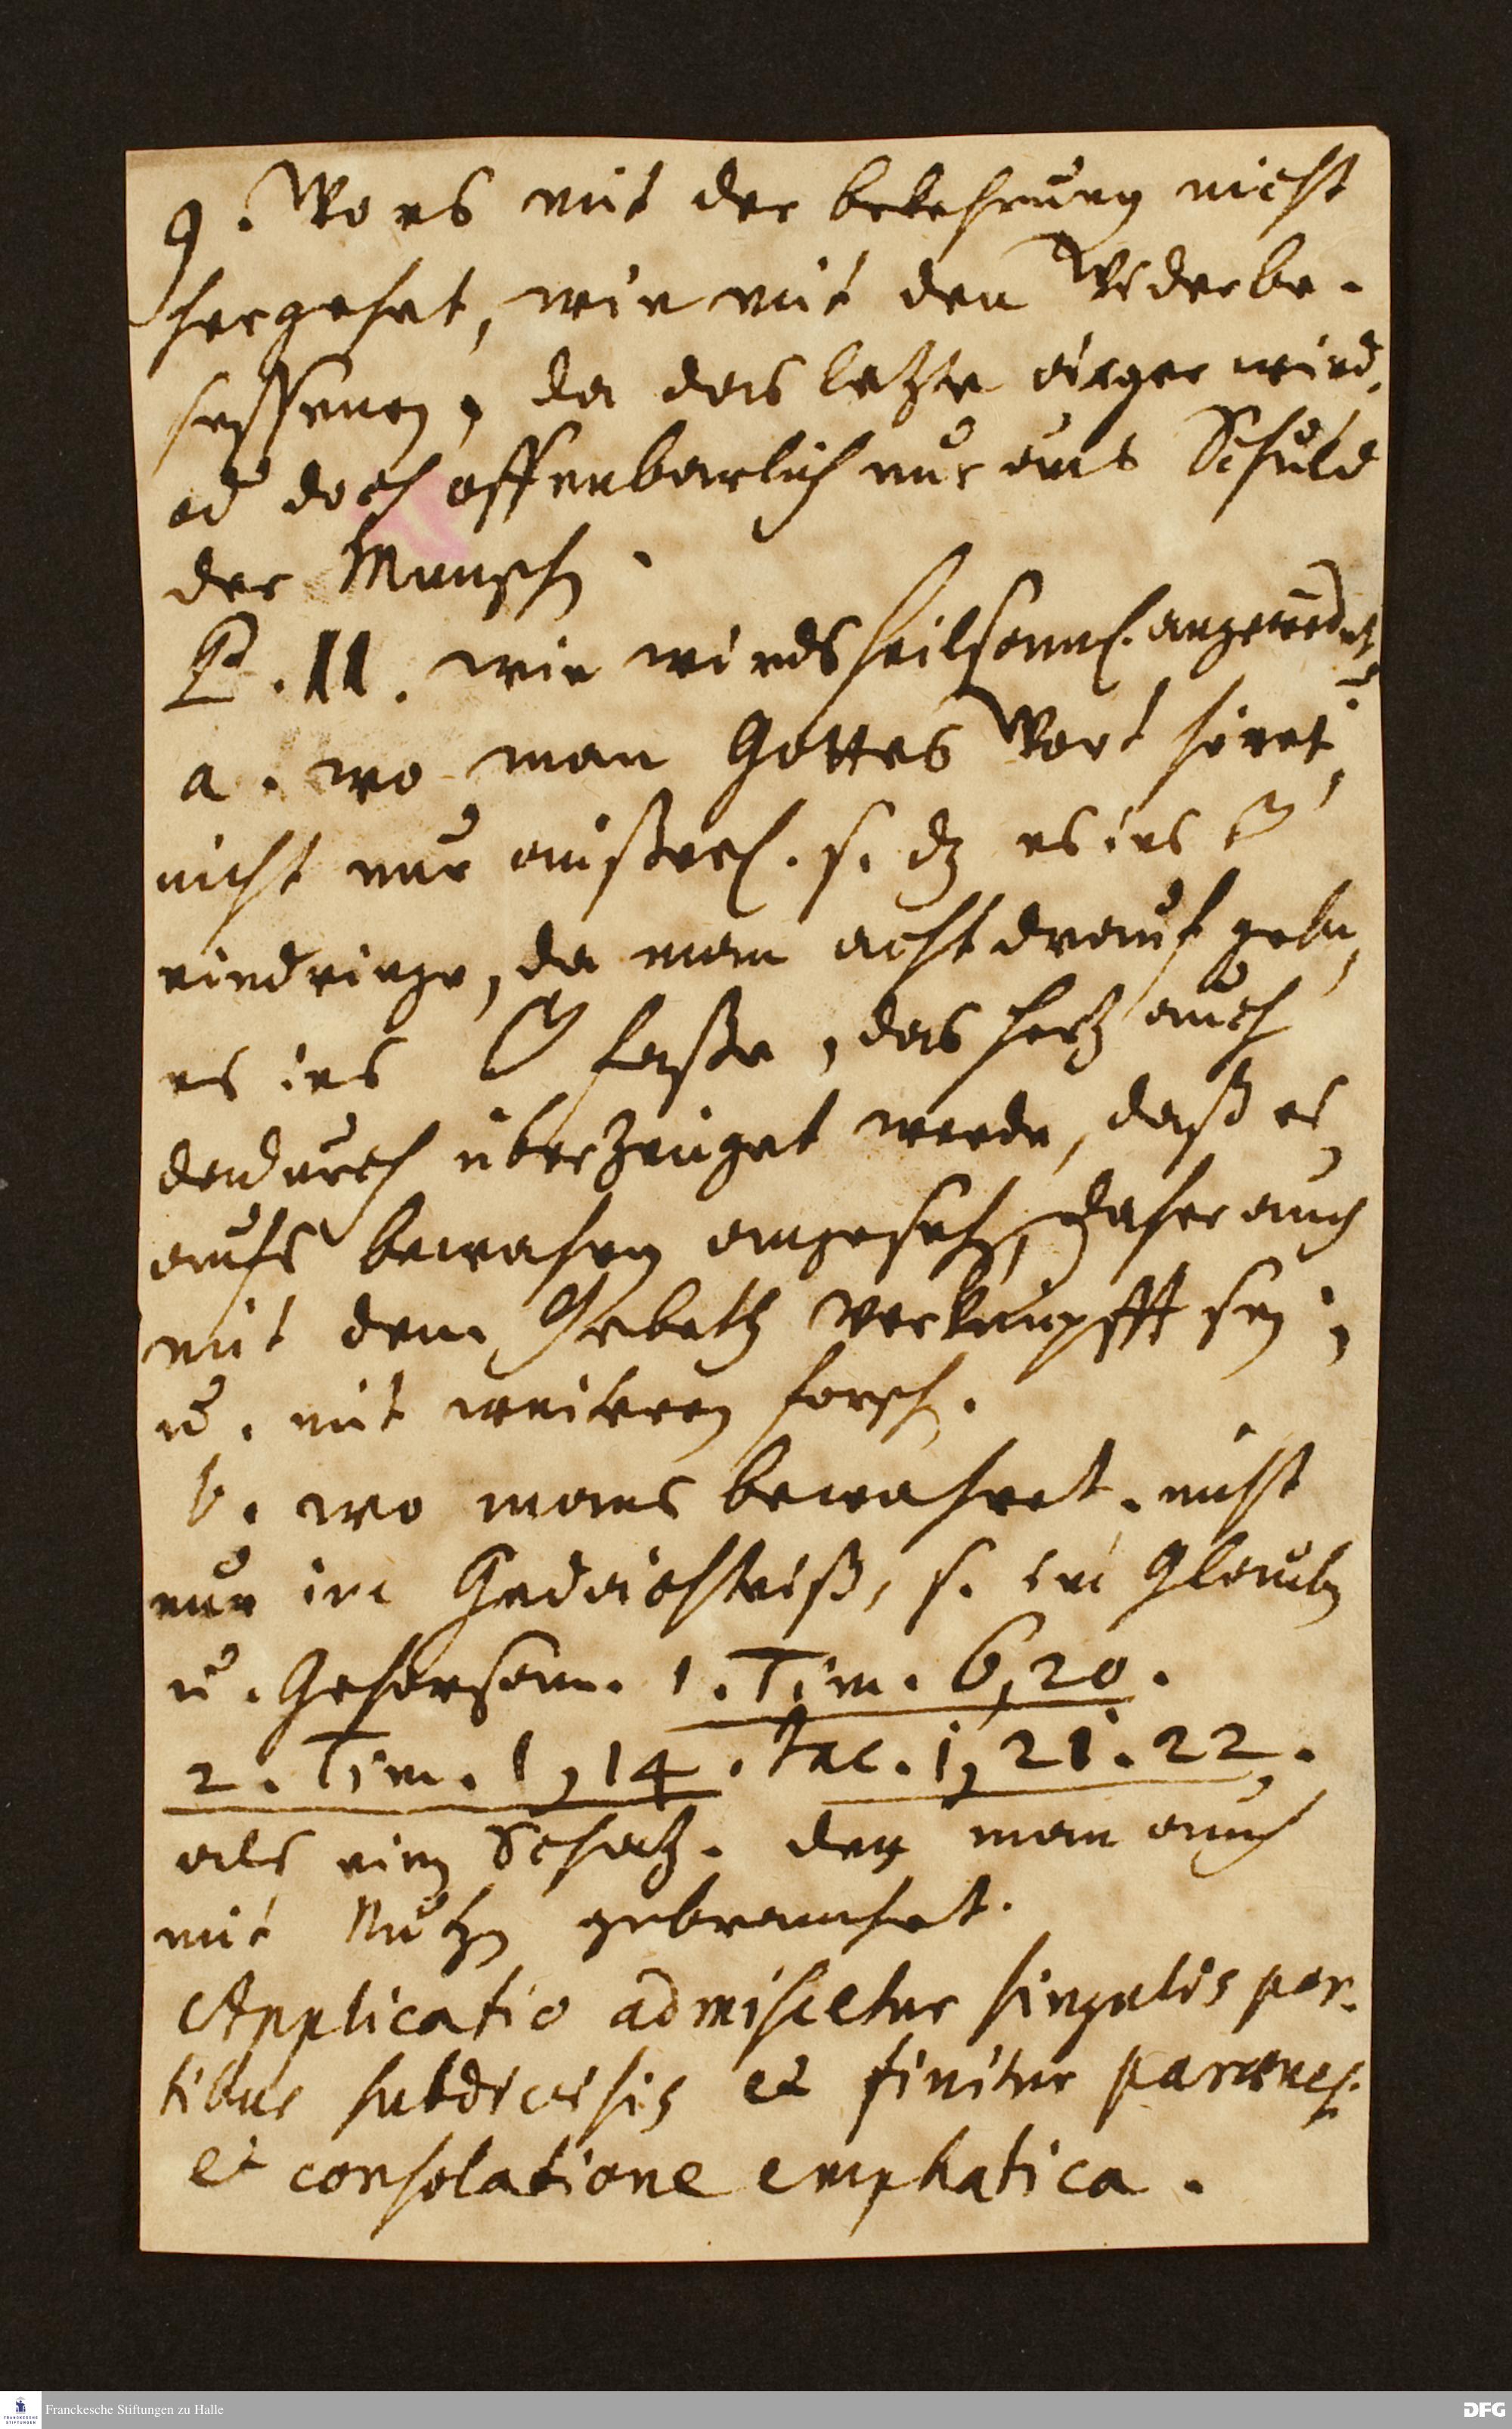 g. Wo es mit der bekehrung nicht
hergehet, wie mit den Widerbe-
seßenen, da das letzte ärger wird,
od doch offenbarlich nur aus Schuld
der Mensch.
P. II. wie wirds heilsaml. angewendet?
a. wo man Gottes Wort höret,
nicht nur äußerl. s. dz es ins
eindringe, da man acht drauf gebe,
es ins faße, das hertz auch
dadurch überzeuget werde, daß es
aufs bewahren angeseh, daher auch
mit dem Gebeth verknüpfft sey;
u. mit weiteren forsch.
b. wo mans bewahret. nicht
nur im Gedächtniß, s. im Glauben
u. Gehorsam. 1. Tim. 6, 20.
2. Tim. 1, 14. Jac. 1, 21. 22.
als ein Schatz. den man auch
mit Nutzen gebrauchet.
Applicatio admiscetur singulis par-
tibus subdivisis et finitur paraenes.
et consolatione emphatica.
Franckesche Stiftungen zu Halle
DFG